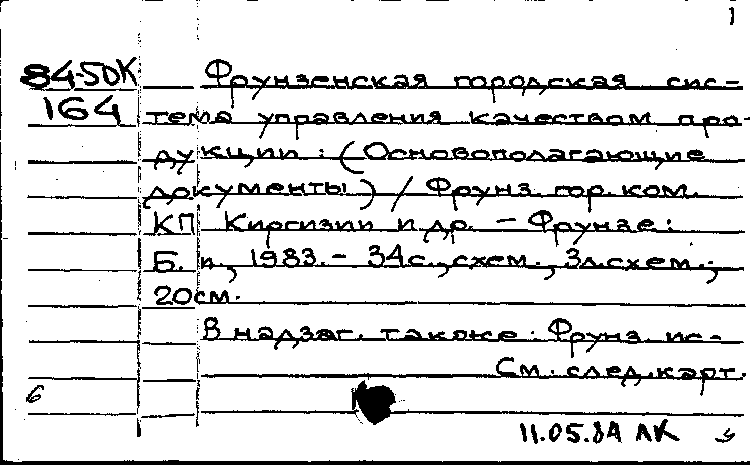 1
84-5DK Фрунзенская городская сис-
164 тема управления качеством про-
дукции : (Основополагающие
документы) / Фрунз. гор. ком.
КП Киргизии и др. – Фрунзе :
Б. и., 1983. – 34 с., схем., 3 л. схем. ;
20 см.
В надзаг. также : Фрунз. ис-
См. след. карт.
6
11.05.84 ЛК